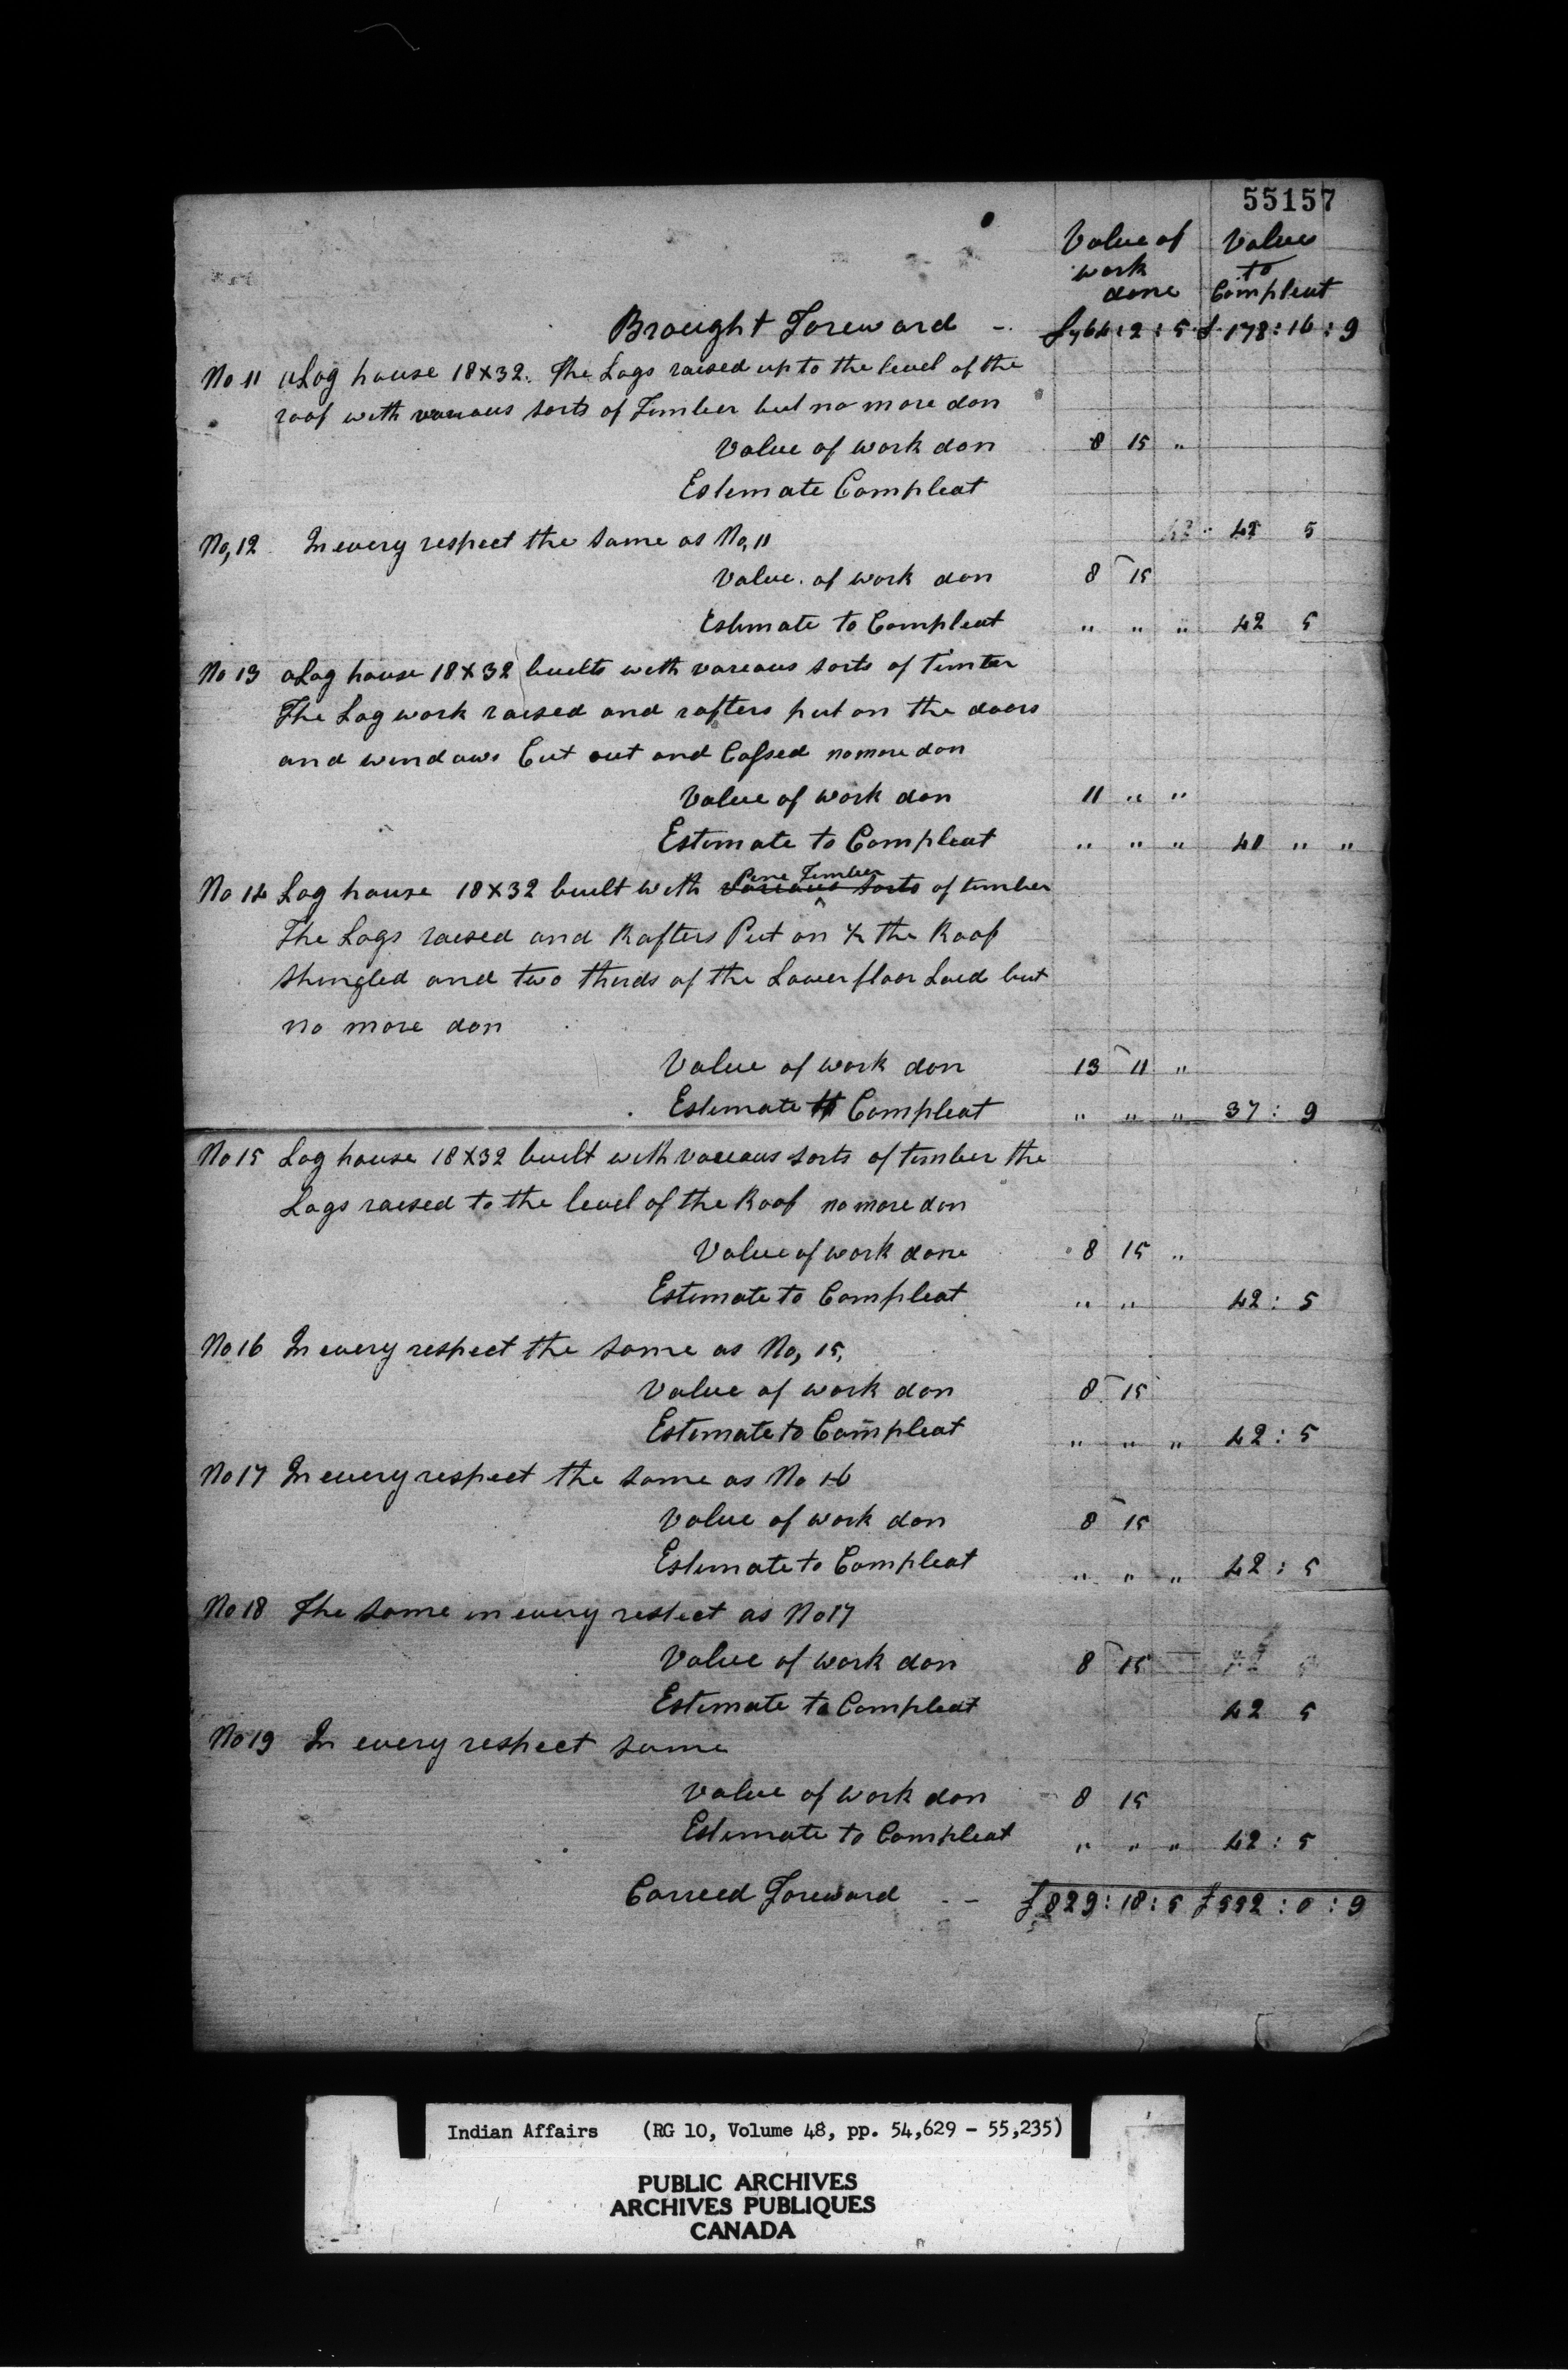 55157
Value of Value
work to
done Compleat
Brought Foreward - £744:2:5 £178:16:9
No 11 a Log house 18x32. The Logs raised up to the level of the
roof with various sorts of Timber but no more don
Value of work don 8 15 "
Estemate Compleat
42 5
No, 12 In every respect the same as No, 11
Value of work don 8 15
Estemate to Compleat " " " 42 5
No 13 a Log house 18x32 builts with vareous sorts of timter
The Log work raised and rafters put on the doors
and windows Cut out and Cassed no more don
Value of work don 11 " "
Estemate to Compleat " " " 40 " "
Pine Timber
No 14 Log house 18x32 built with vareous sorts of timber
The Logs raised and Rafters Put on ½ the Roof
Shingled and two thirds of the Lower floor Laid but
no more don
Value of work don 13 11 "
Estemate to Compleat " " " 37 : 9
No 15 Log house 18x32 built with vareous sorts of timber the
Logs raised to the level of the Roof no more don
Value of work done 8 15 "
Estemate to Compleat " " 42 : 5
No 16 In every respect the same as No, 15,
Value of work don 8 15
Estemate to Compleat " " " 42 : 5
No 17 In every respect the same as No 16
Value of work don 8 15
Estemate to Compleat " " " 42 : 5
No 18 The same in every respect as No 17
Value of work don 8 15
Estemate to Compleat 42 5
No 19 In every respect same
Value of work don 8 15
Estemate to Compleat " " " 42 : 5
Carreed Foreward - - £829:18:5 £552:0:9
Indian Affairs (RG 10, Volume 48, pp. 54,629 - 55,235)
PUBLIC ARCHIVES
ARCHIVES PUBLIQUES
CANADA